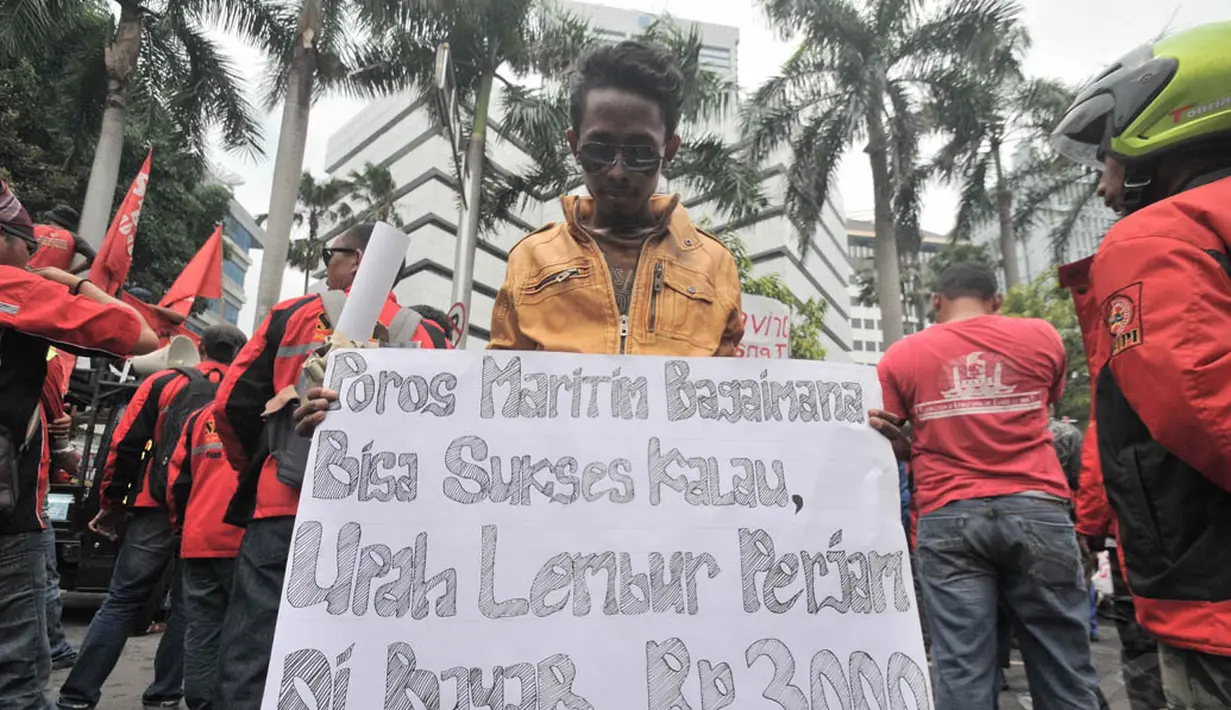 Poros Maritim Bagaimana
Bisa Sukses Kalau,
Upah Lembur Perjam
Di Bayar Rp 3000
Touring